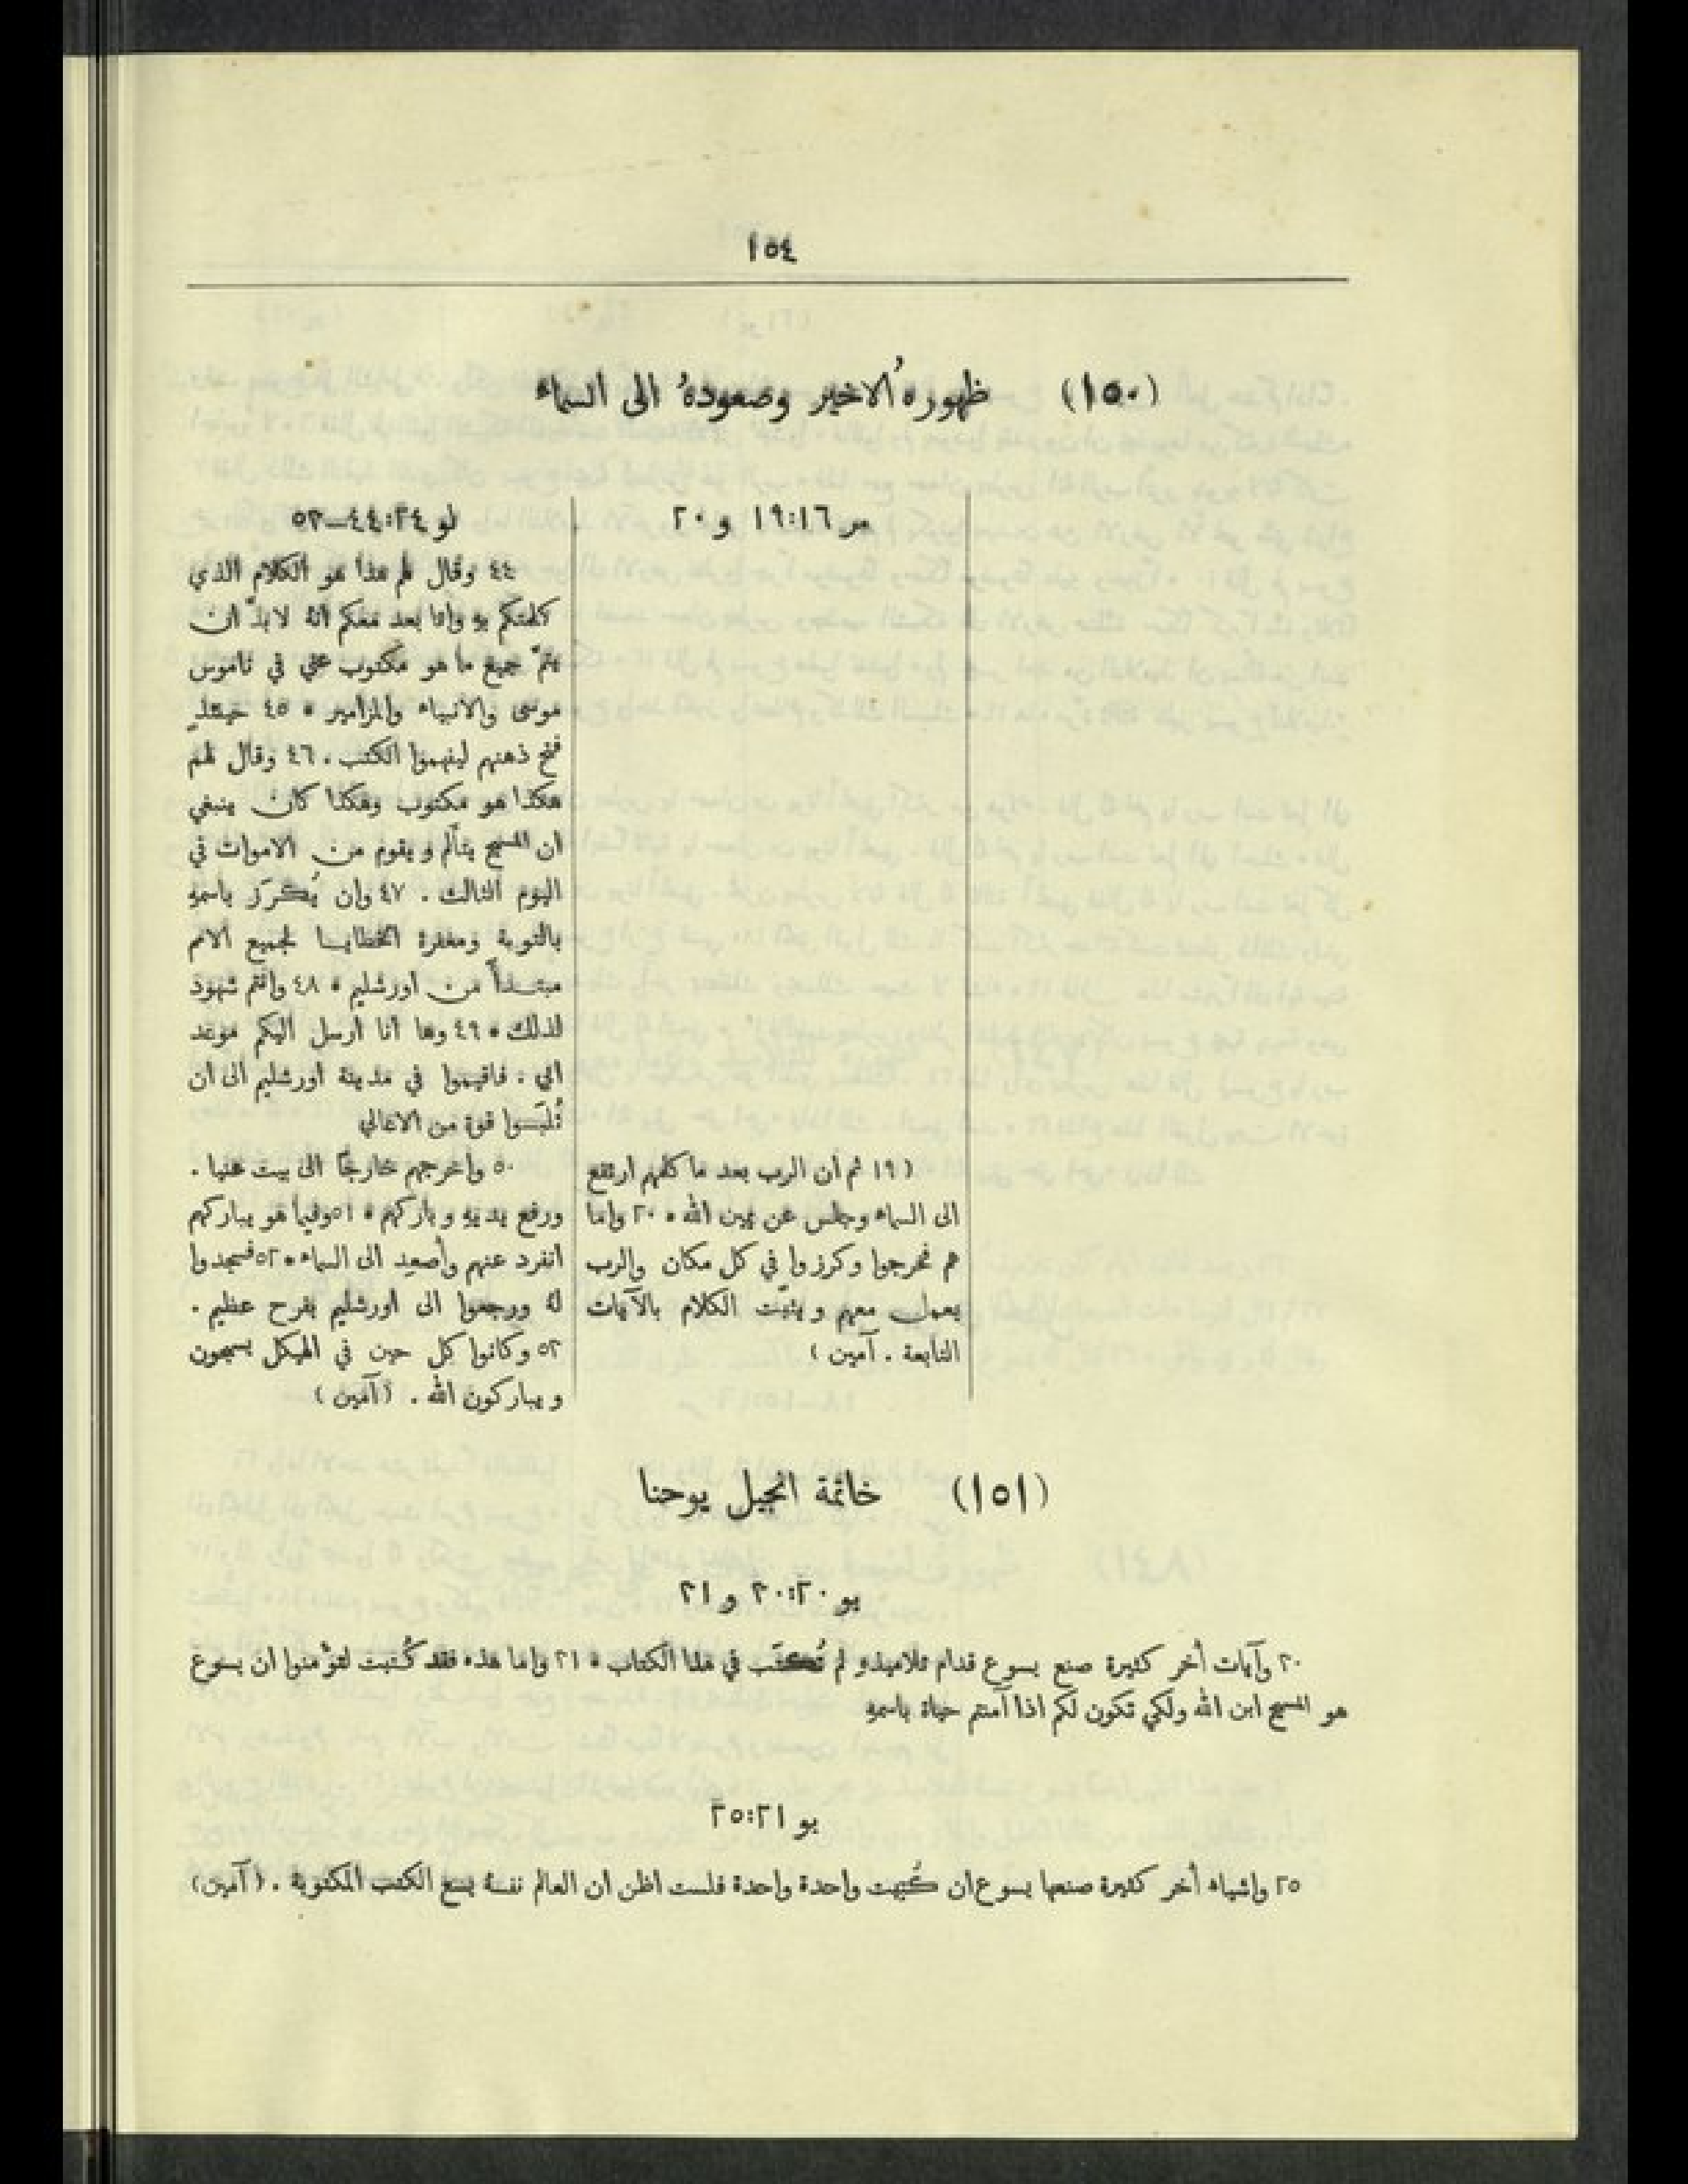 ١٥٤
(١٥٠) ظهورهُ الاخير وصعودهُ الى السماء
مر ١٦:١٩ و ٢٠
(١٩ ثم ان الرب بعد ما كلمهم ارتفع
الى السماء وجلس عن يمين الله • ٢٠ واما
هم فخرجوا وكرزوا في كل مكان والرب
يعمل معهم ويثبّت الكلام بالآيات
التابعة . آمين)
لو ٢٤:٤٤–٥٣
٤٤ وقال لهم هذا هو الكلام الذي
كلمتكم بهِ وانا بعد معكم انهُ لا بدّ ان
يتمّ جميع ما هو مكتوب عني في ناموس
موسى والانبياء والمزامير • ٤٥ حينئذٍ
فتح ذهنهم ليفهموا الكتب . ٤٦ وقال لهم
هكذا هو مكتوب وهكذا كان ينبغي
ان المسيح يتألم ويقوم من الاموات في
اليوم الثالث . ٤٧ وان يُكرَز باسمهِ
بالتوبة ومغفرة الخطايا لجميع الامم
مبتدأً من اورشليم • ٤٨ وانتم شهود
لذلك • ٤٩ وها انا ارسل اليكم موعد
ابي . فاقيموا في مدينة اورشليم الى ان
تُلبَسوا قوة من الاعالي
٥٠ واخرجهم خارجًا الى بيت عنيا .
ورفع يديهِ وباركهم • ٥١ وفيما هو يباركهم
انفرد عنهم وأُصعِد الى السماء • ٥٢ فسجدوا
لهُ ورجعوا الى اورشليم بفرح عظيم .
٥٣ وكانوا كل حين في الهيكل يسبحون
ويباركون الله . (آمين)
(١٥١) خاتمة انجيل يوحنا
يو ٢٠:٣٠ و ٣١
٣٠ وآيات أُخر كثيرة صنع يسوع قدام تلاميذهِ لم تُكتَب في هذا الكتاب • ٣١ واما هذه فقد كُتبت لتؤْمنوا ان يسوع
هو المسيح ابن الله ولكي تكون لكم اذا آمنتم حياة باسمهِ
يو ٢١:٢٥
٢٥ واشياء أُخر كثيرة صنعها يسوع ان كُتِبت واحدة واحدة فلست اظن ان العالم نفسهُ يسع الكتب المكتوبة . (آمين)